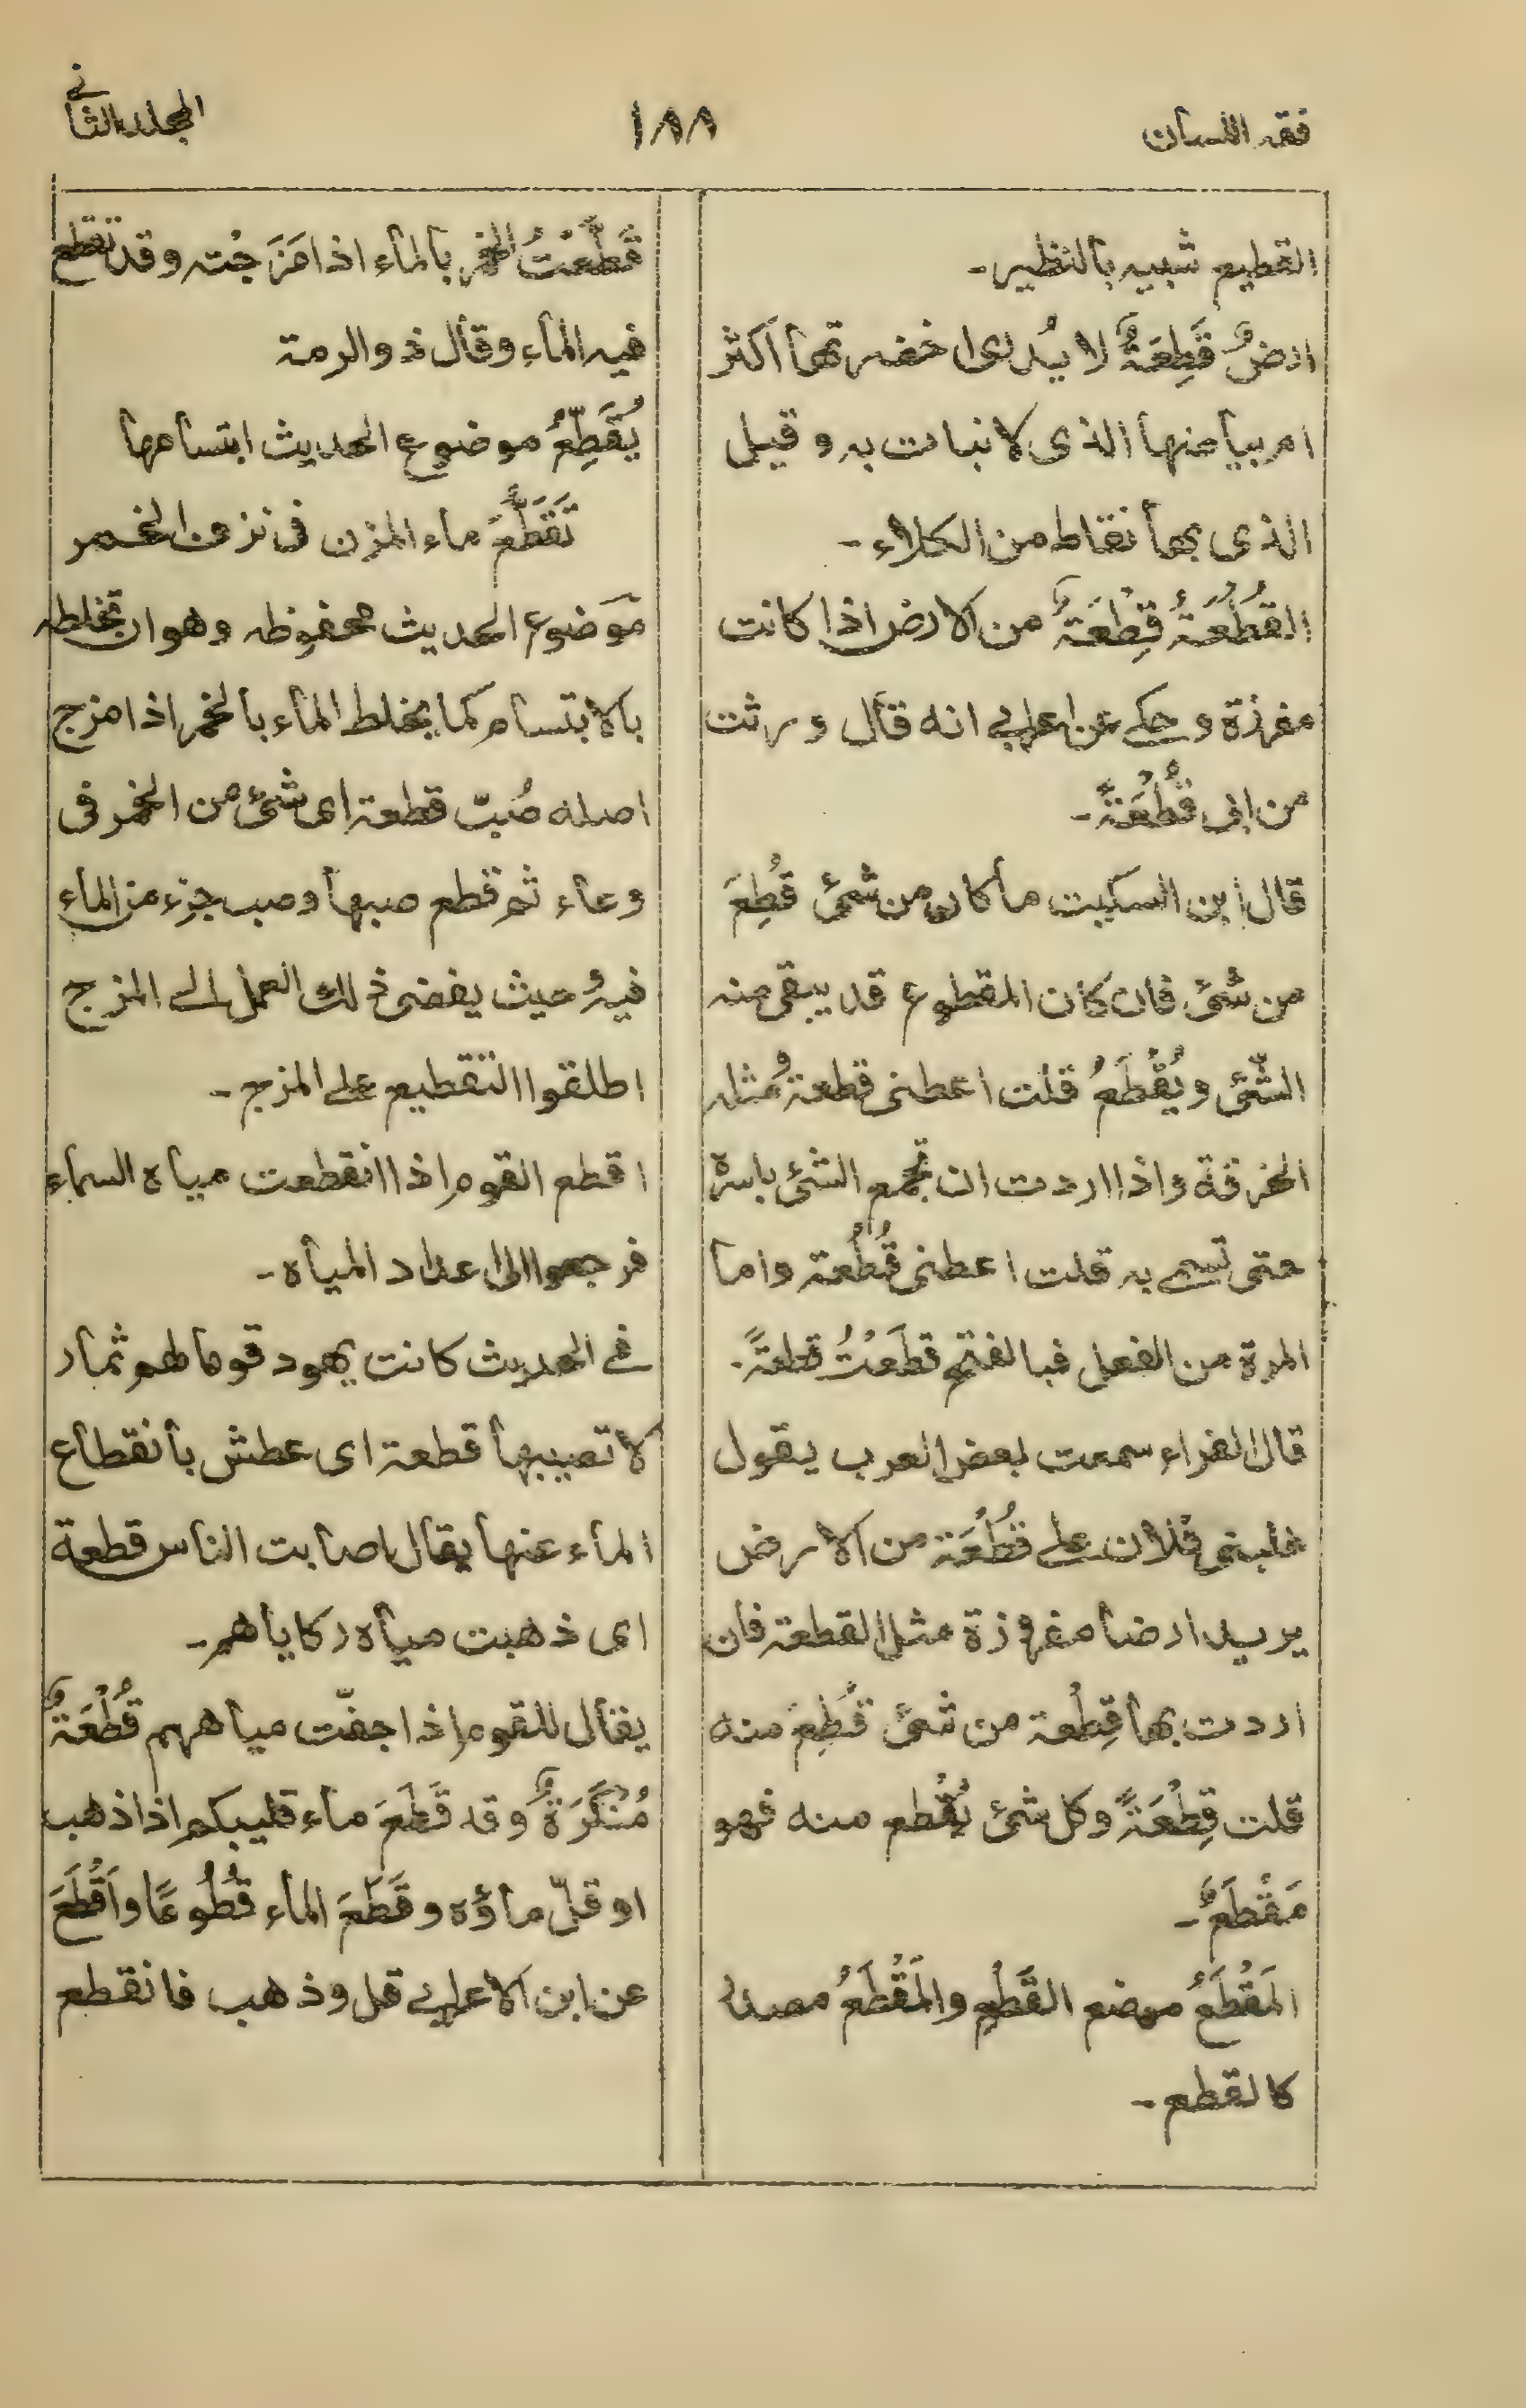 فقه اللسان
١٨٨
المجلد الثانی
القطیع شبیه بالنظیر۔
ارضٌ قَطِعَةٌ لا یُدریٰ اخضرتها اکثر
ام بیاضها الذی لا نبات به و قیل
الذی بها نقاط من الکلاء۔
القُطُعَةُ قِطْعَةٌ من الارض اذا کانت
مفرزة و حکی عن اعرابی انه قال ورثت
من ابی قُطْعَةً۔
قال ابن السکیت ما کان من شیٔ قُطِعَ
من شیٔ فان کان المقطوع قد یبقی منه
الشّیٔ و یُقْطَعُ قلت اعطنی قطعةً مثله
الخرقة و اذا اردت ان تجمع الشیٔ باسرة
حتی تسمی به قلت اعطنی قُطْعة واما
المرة من الفعل فبالفتح قطَعْتُ قطعةً۔
قال الفراء سمعت بعض العرب یقول
غلبنی فلان علی قُطْعَة من الارض
یرید ارضا مفروزة مثل القطعة فان
اردت بها قِطْعة من شیٔ قُطِعَ منه
قلت قِطْعَةً و کل شیٔ یُقْطع منه فهو
مَقْطَعٌ۔
المَقْطَعُ موضع القَطْعِ والمَقْطَعُ مصدر
کالقطع۔
قَطَّعْتُ الخمر بالماء اذا مَزَجْته وقد تقطع
فیه الماء وقال ذو الرمة
یُقَطِّعُ موضوع الحدیث ابتسامها
تَقَطُّعَ ماء المزن فی نزف الخمر
مَوضوع الحدیث محفوظه وهو ان تخلطه
بالابتسام کما یخلط الماء بالخمر اذا مزج
اصله صُبّ قطعة ای شیٔ من الخمر فی
وعاء ثم قطع صبها وصب جزء من الماء
فیه حیث یفضی ذلك العمل الی المزج
اطلقوا التقطیع علی المزج۔
اقطع القوم اذا انقطعت میاه السماء
فرجعوا الی اعداد المیاه۔
فی الحدیث کانت یهود قوما لهم ثمار
لا تصیبها قطعة ای عطش بانقطاع
الماء عنها یقال اصابت الناس قطعة
ای ذهبت میاه رکایاهم۔
یقال للقوم اذا جفّت میاههم قُطْعَةٌ
مُنْکَرَةٌ وقد قَطَعَ ماء قلیبکم اذا ذهب
او قلّ ماؤه و قَطَعَ الماء قُطُوعًا و اَقْطَعَ
عن ابن الاعرابی قل و ذهب فانقطع